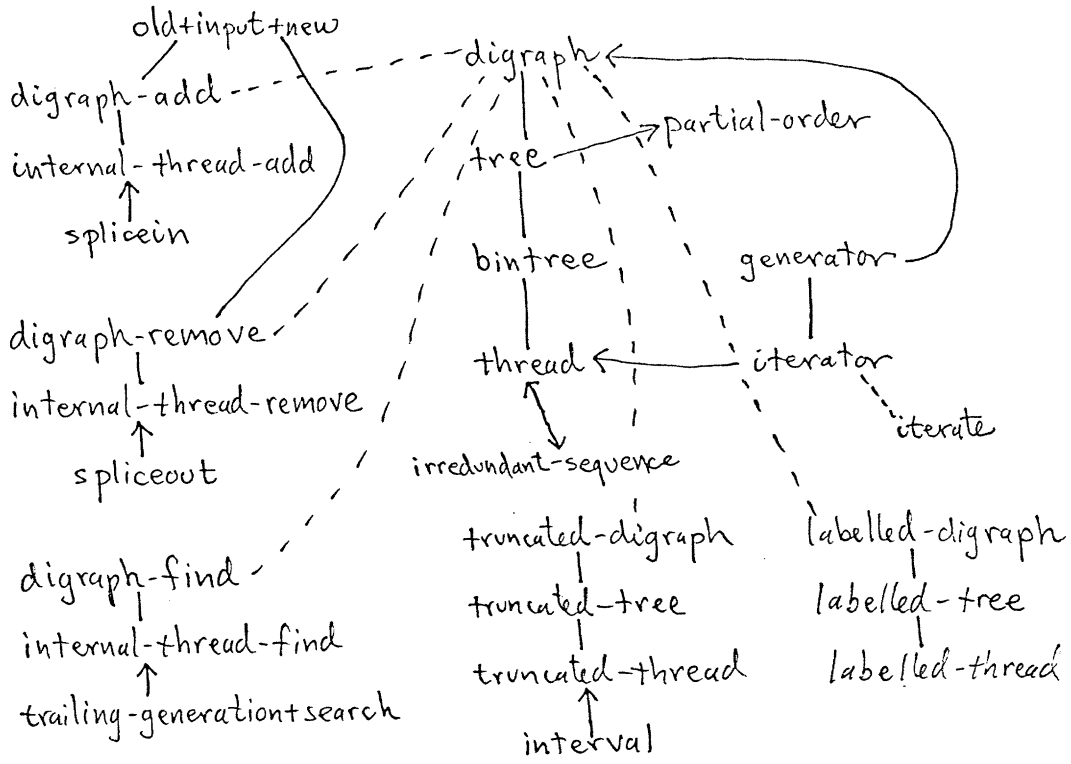 old+input+new
digraph-add
internal-thread-add
splicein
digraph-remove
internal-thread-remove
spliceout
digraph-find
internal-thread-find
trailing-generation+search
digraph
tree
partial-order
bintree
generator
thread
iterator
iterate
irredundant-sequence
truncated-digraph
truncated-tree
truncated-thread
interval
labelled-digraph
labelled-tree
labelled-thread